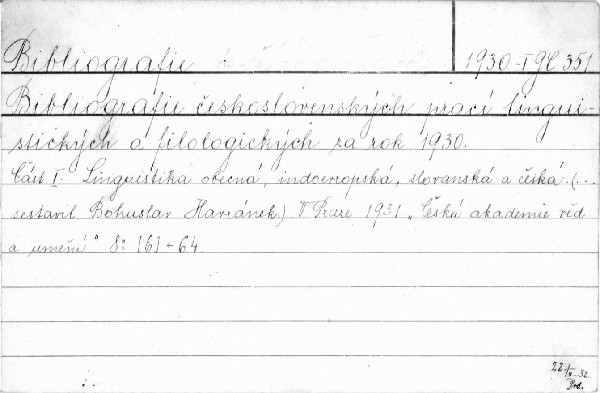 Bibliografie 1930-I 9E 351
Bibliografie československých prací lingui-
stických a filologických za rok 1930.
Část I. Linguistika obecná, indoevropská, slovanská a česká. (...
sestavil Bohuslav Havránek) V Praze 1931 „Česká akademie věd
a umění" 8° [6]+64